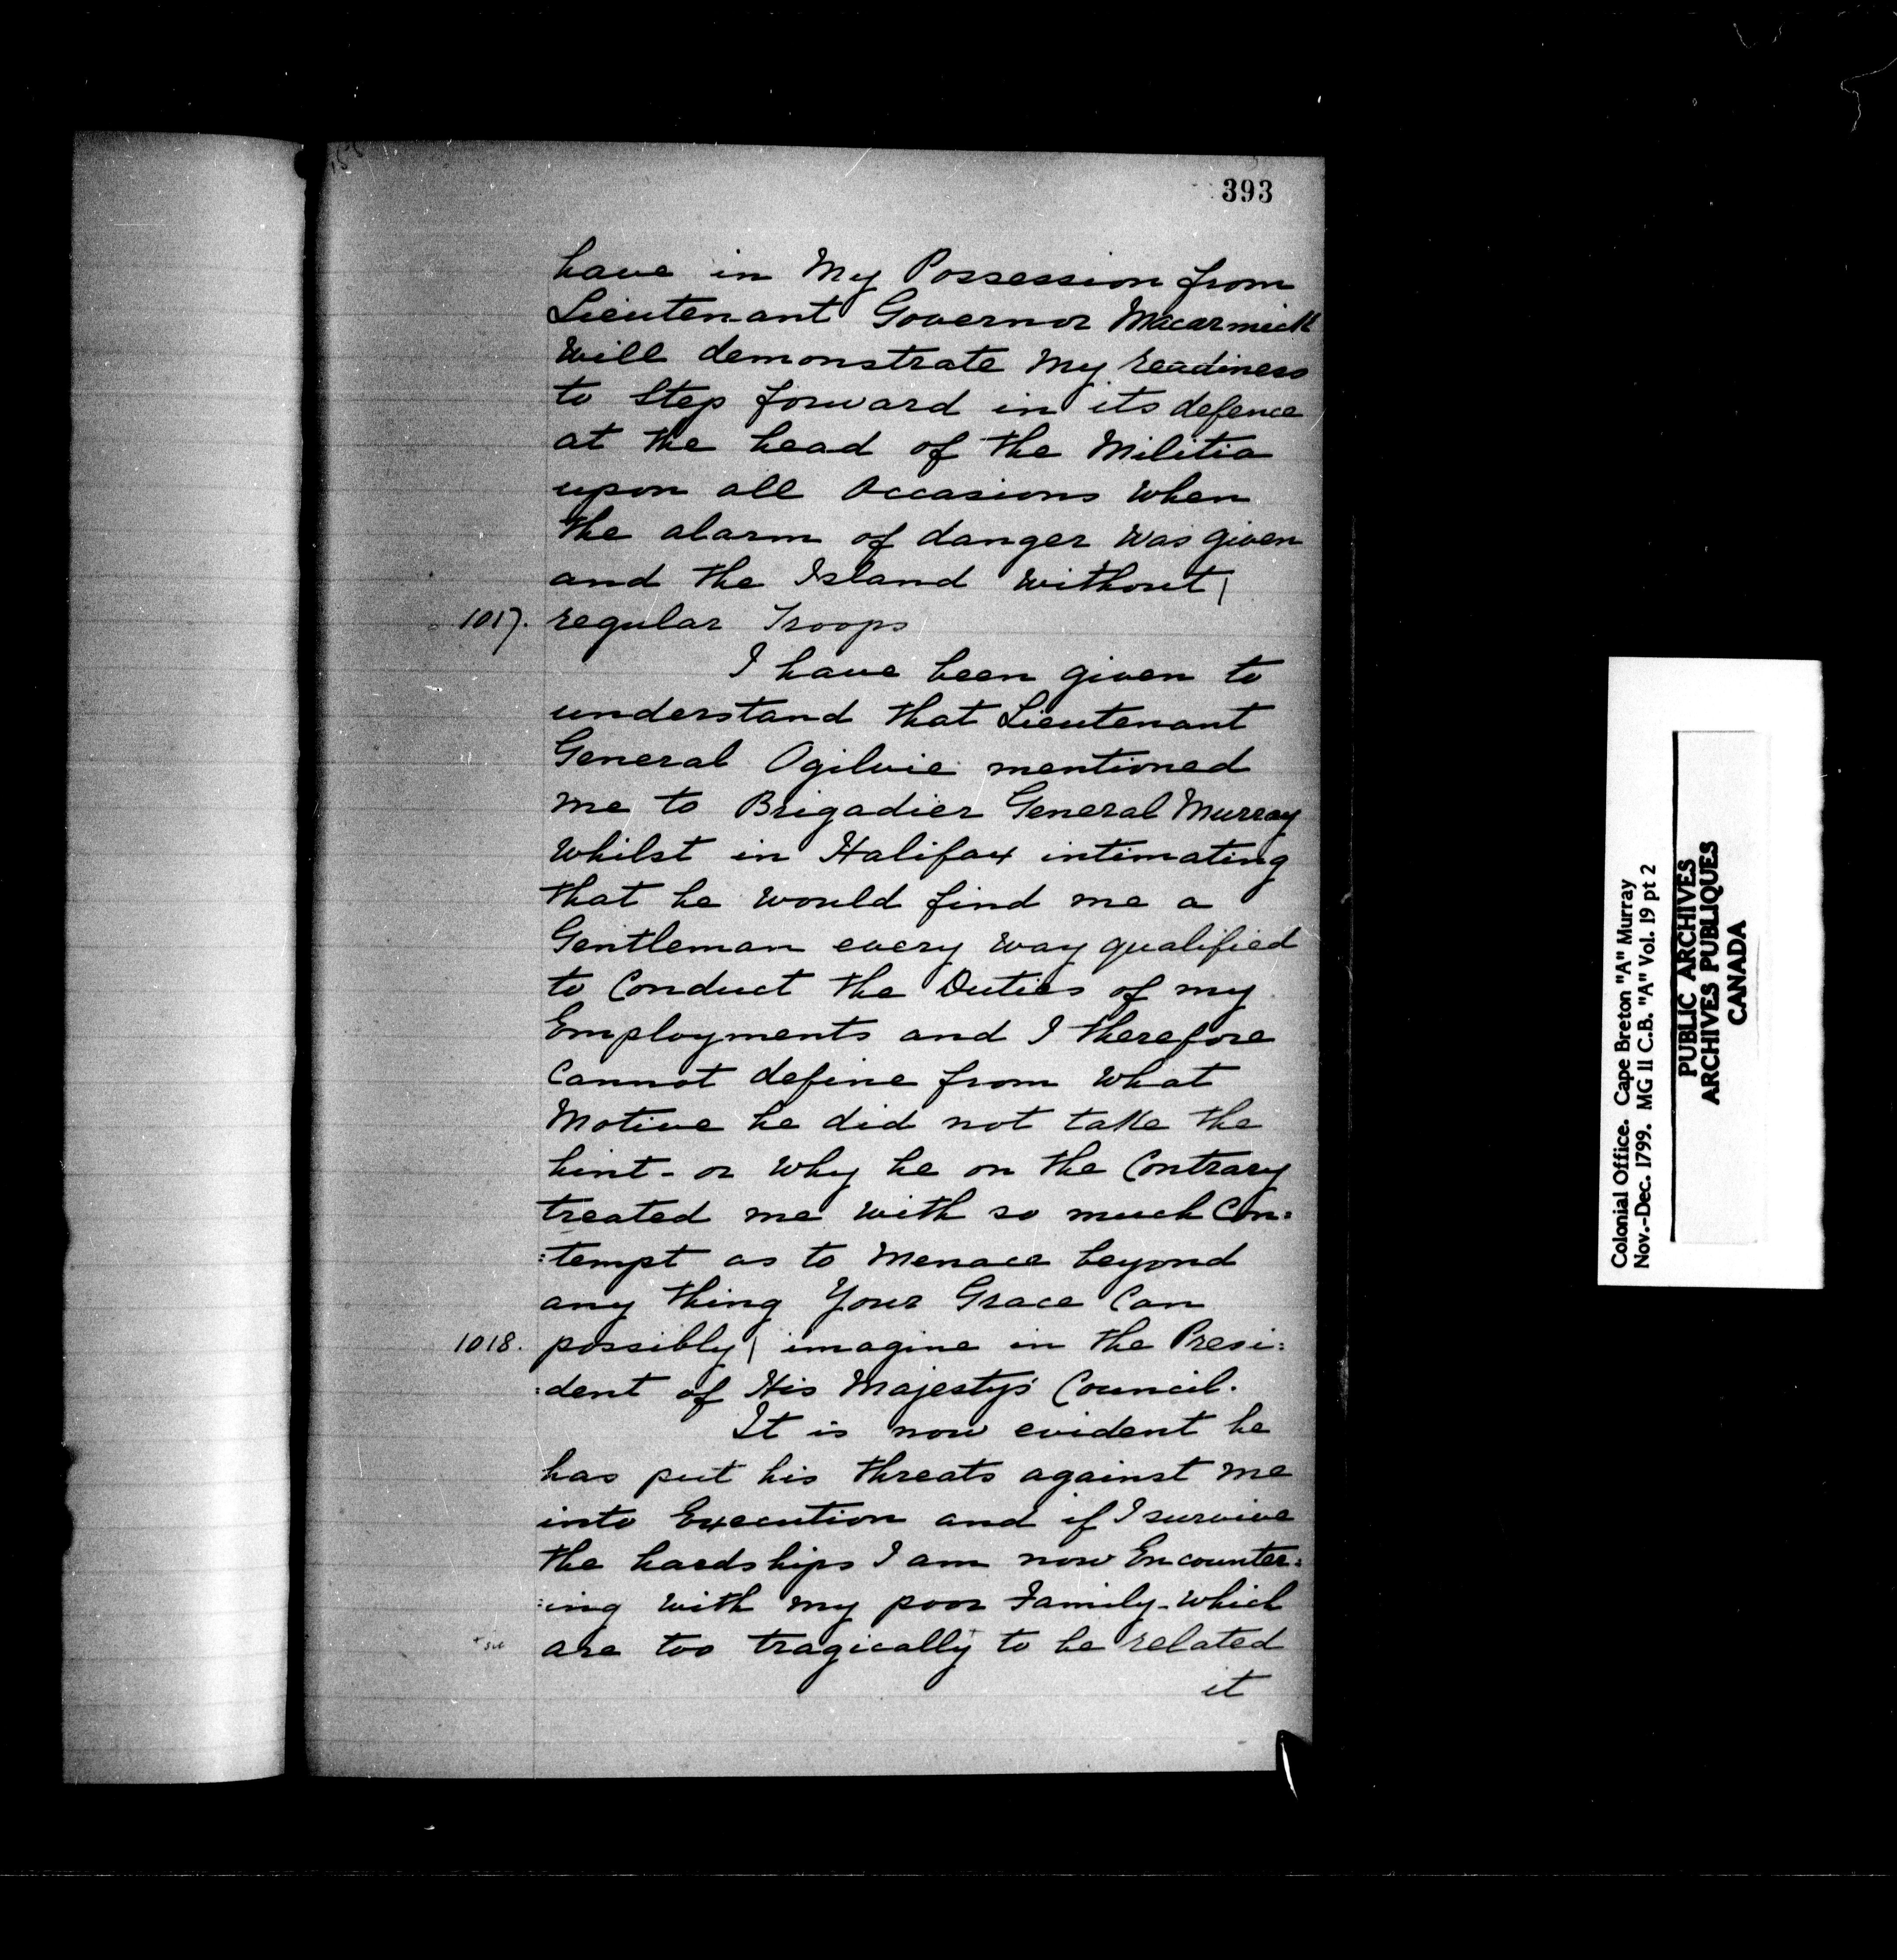 393
have in My Possession from
Lieutenant Governor Macarmick
Will demonstrate My readiness
to Step forward in its defence
at the head of the Militia
upon all Occasions When
the alarm of danger Was given
and the Island Without |
1017. regular Troops
I have been given to
understand that Lieutenant
General Ogilvie mentioned
me to Brigadier General Murray
Whilst in Halifax intimating
that he Would find me a
Gentleman every Way qualified
to Conduct the Duties of my
Employments and I therefore
Cannot define from What
Motive he did not take the
hint - or Why he on the Contrary
treated me With so much Con:
:tempt as to Menace beyond
any thing Your Grace Can
1018. possibly | imagine in the Presi:
:dent of His Majesty's Council.
It is now evident he
has put his threats against me
into Execution and if I survive
the hardships I am now Encounter:
:ing With my poor Family - Which
are too tragically to be related
it
Colonial Office. Cape Breton "A" Murray
Nov.-Dec. 1799. MG 11 C.B. "A" Vol. 19 pt 2
PUBLIC ARCHIVES
ARCHIVES PUBLIQUES
CANADA